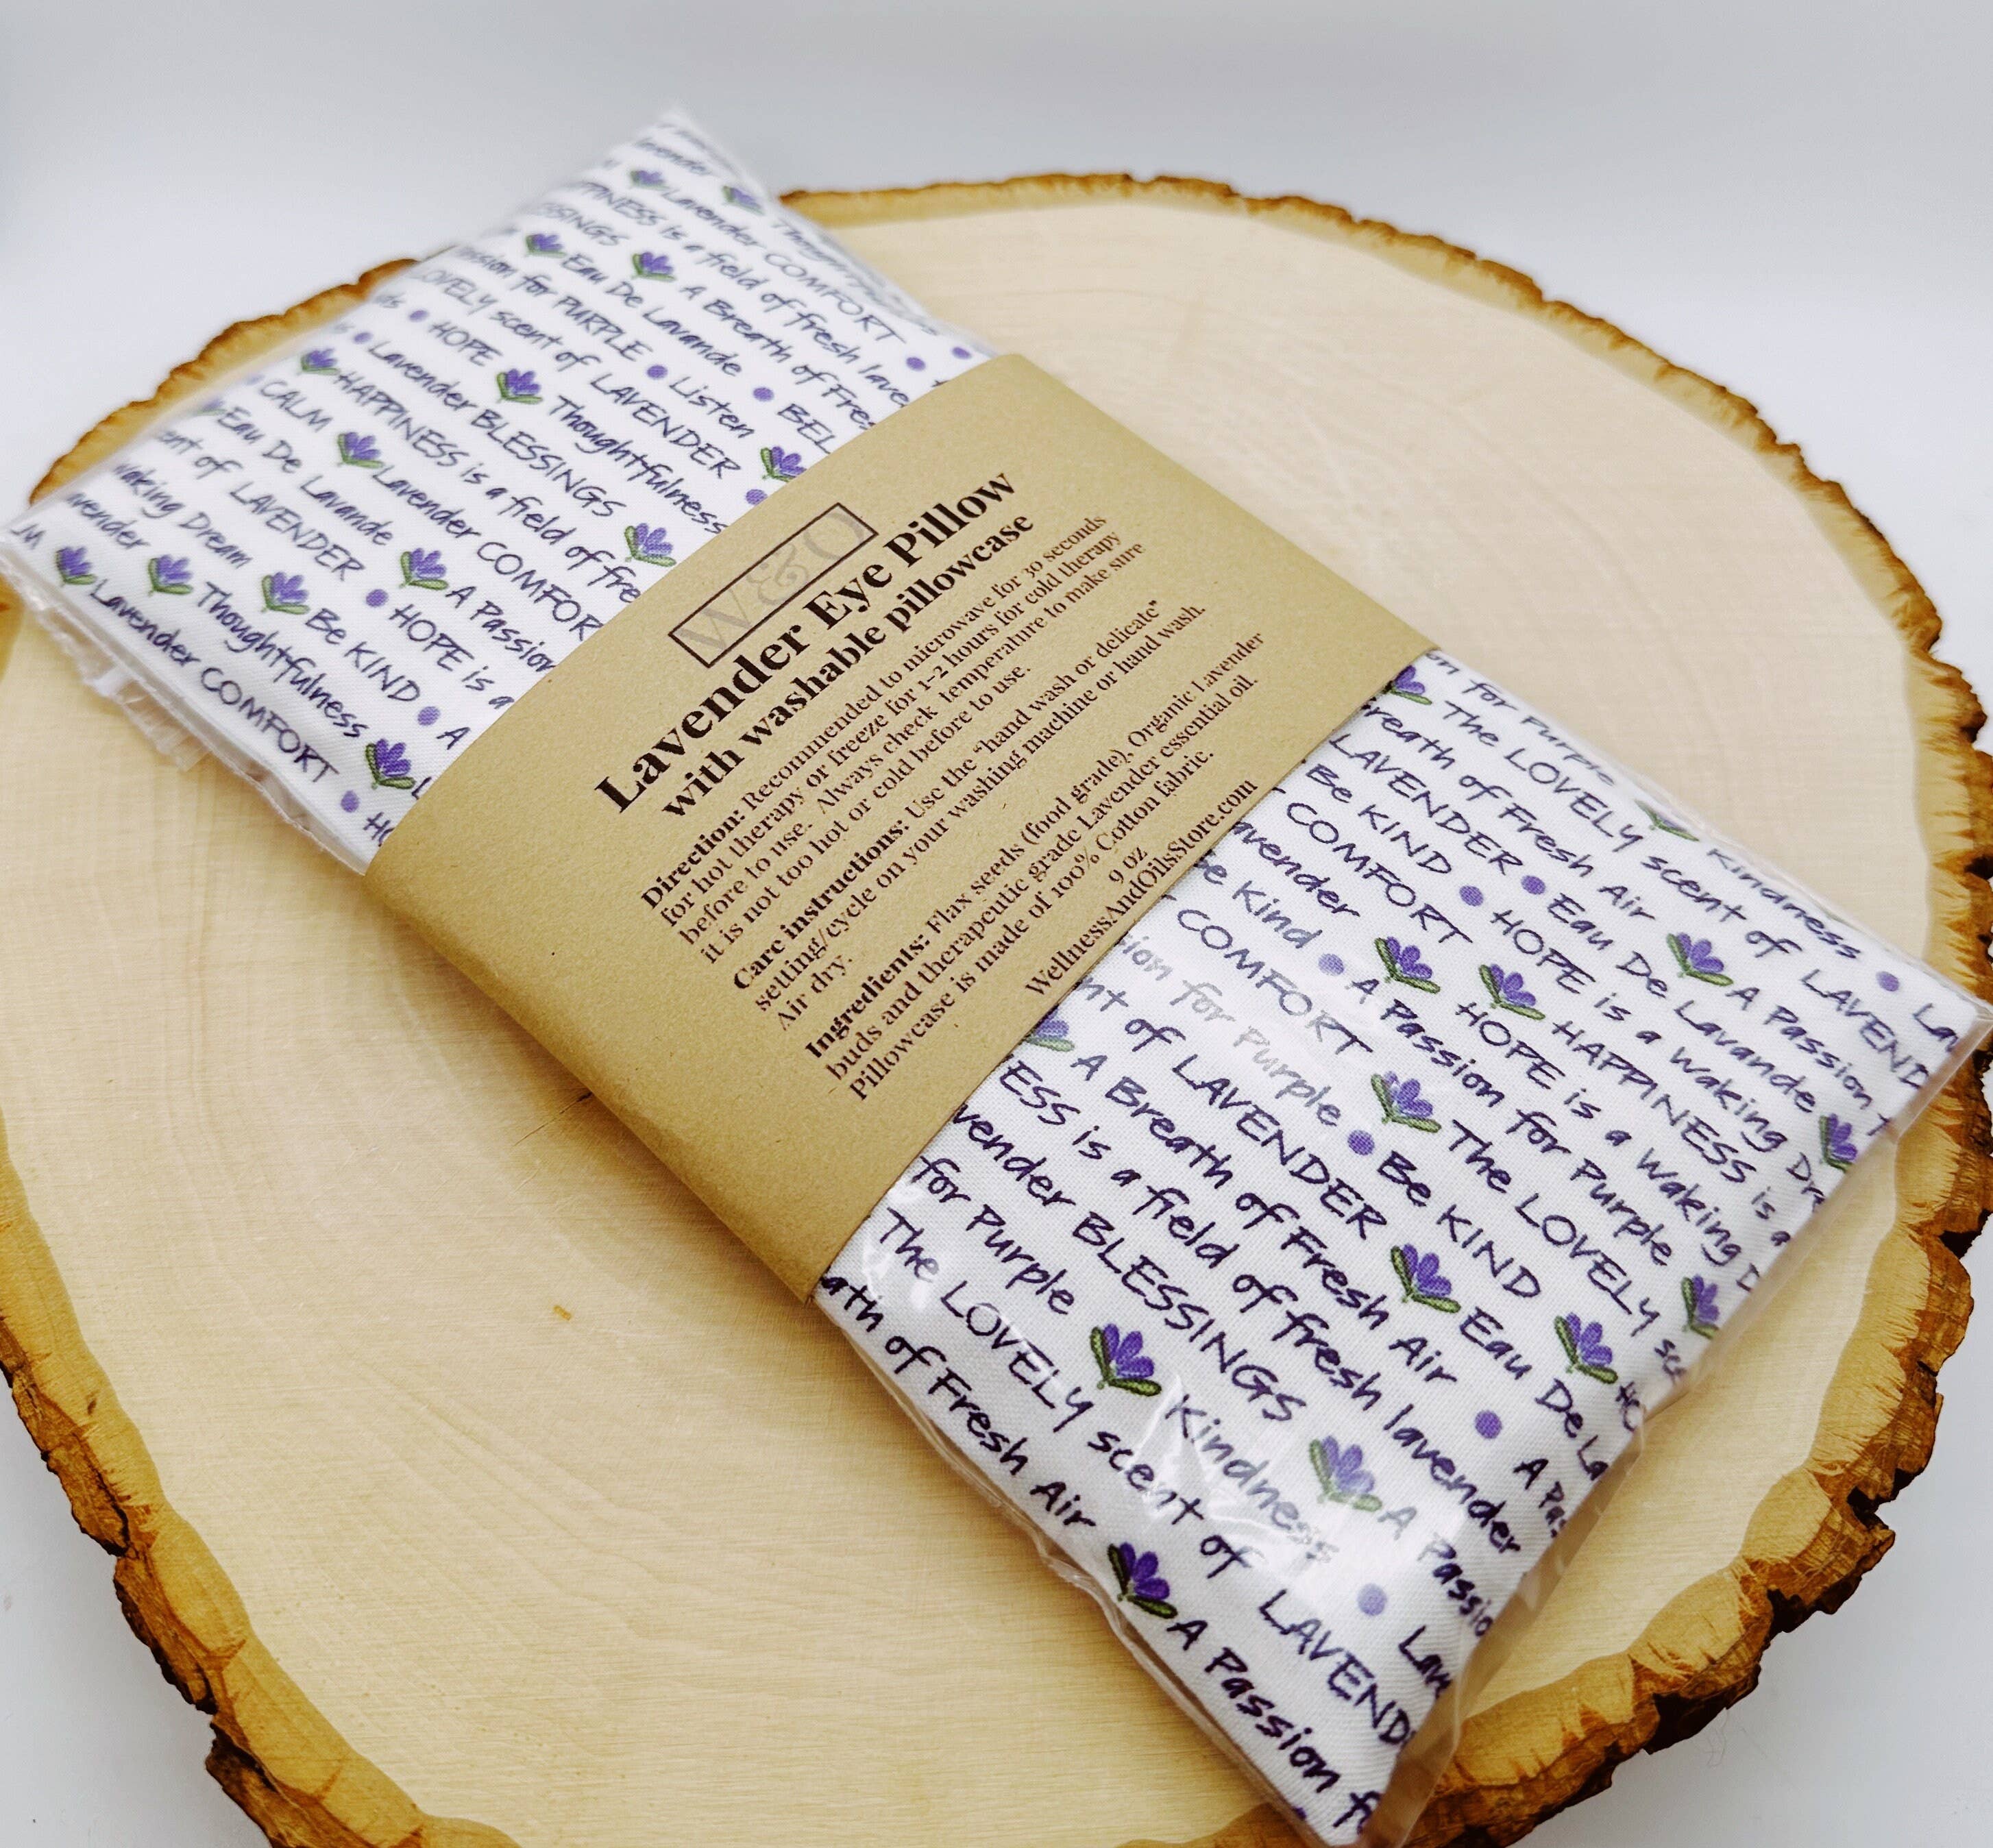 W&O
Lavender Eye Pillow
with washable pillowcase
Direction: Recommended to microwave for 30 seconds
for hot therapy or freeze for 1-2 hours for cold therapy
before to use. Always check temperature to make sure
it is not too hot or cold before to use.
Care instructions: Use the "hand wash or delicate"
setting/cycle on your washing machine or hand wash.
Air dry.
Ingredients: Flax seeds (food grade), Organic Lavender
buds and therapeutic grade Lavender essential oil.
Pillowcase is made of 100% Cotton fabric.
9 oz
WellnessAndOilsStore.com
Lavender COMFORT
HAPPINESS is a field of fresh
Eau De Lavande
A Breath of
for PURPLE
Listen
LOVELY scent of LAVENDER
HOPE
Thoughtfulness
Lavender BLESSINGS
HAPPINESS is a field of
CALM
Lavender
Eau De Lavande
A Passion
of LAVENDER
HOPE is a
Waking Dream
Be KIND
A
Thoughtfulness
Lavender COMFORT
for Purple
The LOVELY scent of
Kindness
of Fresh Air
A Passion
LAVENDER
Eau De Lavande
Be KIND
HOPE is a Waking
COMFORT
HAPPINESS is a
Be Kind
HOPE is a Waking
COMFORT
A Passion for Purple
for Purple
Be KIND
The LOVELY
of LAVENDER
Eau De
A Breath of Fresh Air
is a field of fresh lavender
BLESSINGS
A
for Purple
Kindness
The LOVELY scent of
of Fresh Air
A Passion